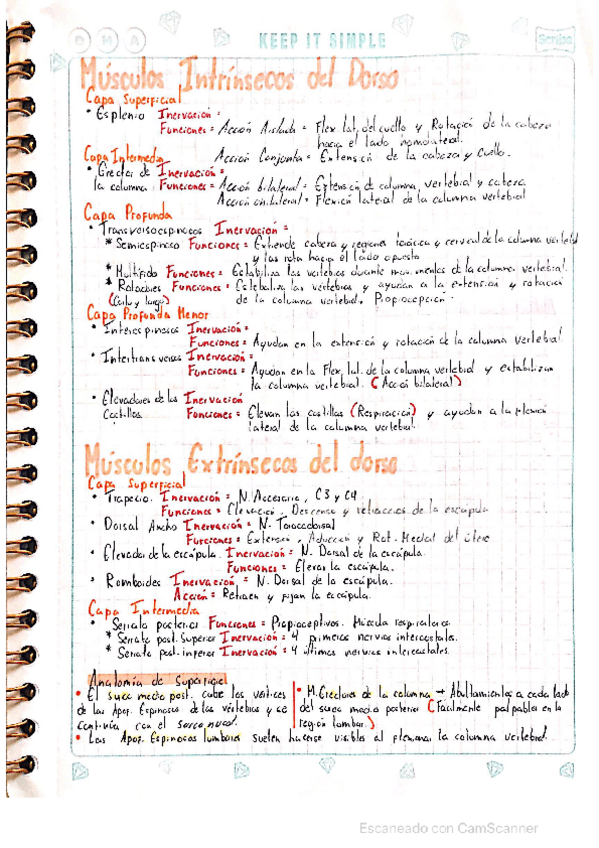 D M A
KEEP IT SIMPLE
Scribe
Músculos Intrínsecos del Dorso
Capa Superficial
• Esplenio Inervación =
Funciones = Acción Aislada = Flex. lat. del cuello y Rotación de la cabeza
hacia el lado homolateral.
Acción Conjunta = Extensión de la cabeza y cuello.
Capa Intermedia
• Erector de Inervación =
la columna Funciones = Acción bilateral = Extensión de columna vertebral y cabeza
Acción unilateral = Flexión lateral de la columna vertebral
Capa Profunda
• Transversoespinosos Inervación =
* Semiespinoso Funciones = Extiende cabeza y regiones torácica y cervical de la columna vertebral
y las rota hacia el lado opuesto
* Multífido Funciones = Estabiliza las vértebras durante movimientos de la columna vertebral.
* Rotadores Funciones = Estabiliza las vértebras y ayudan a la extensión y rotación
(Corto y largo) de la columna vertebral. Propiocepción.
Capa Profunda Menor
• Interespinosos Inervación =
Funciones = Ayudan en la extensión y rotación de la columna vertebral
• Intertransversos Inervación =
Funciones = Ayudan en la Flex. lat. de la columna vertebral y estabilizan
la columna vertebral. (Acción bilateral)
• Elevadores de las Inervación
Costillas Funciones = Elevan las costillas (Respiración) y ayudan a la flexión
lateral de la columna vertebral.
Músculos Extrínsecos del dorso
Capa Superficial
• Trapecio. Inervación = N. Accesorio, C3 y C4
Funciones = Elevación, Descenso y retracción de la escápula
• Dorsal Ancho Inervación = N. Toracodorsal
Funciones = Extensión, Aducción y Rot. Medial del útero
• Elevador de la escápula. Inervación = N. Dorsal de la escápula.
Funciones = Elevar la escápula.
• Romboides Inervación = N. Dorsal de la escápula.
Acción = Retraen y fijan la escápula.
Capa Intermedia
• Serrato posterior Funciones = Propioceptivos. Músculo respiratorio
* Serrato post. Superior Inervación = 4 primeros nervios intercostales.
* Serrato post. inferior Inervación = 4 últimos nervios intercostales.
Anatomía de Superficie
• El surco medio post. cubre los vértices
de las Apof. Espinosas de las vértebras y se
continúa con el surco nucal.
• M. Erectores de la columna → Abultamientos a cada lado
del surco medio posterior (Fácilmente palpables en la
región lumbar.)
• Las Apof. Espinosas lumbares suelen hacerse visibles al flexionar la columna vertebral.
Escaneado con CamScanner